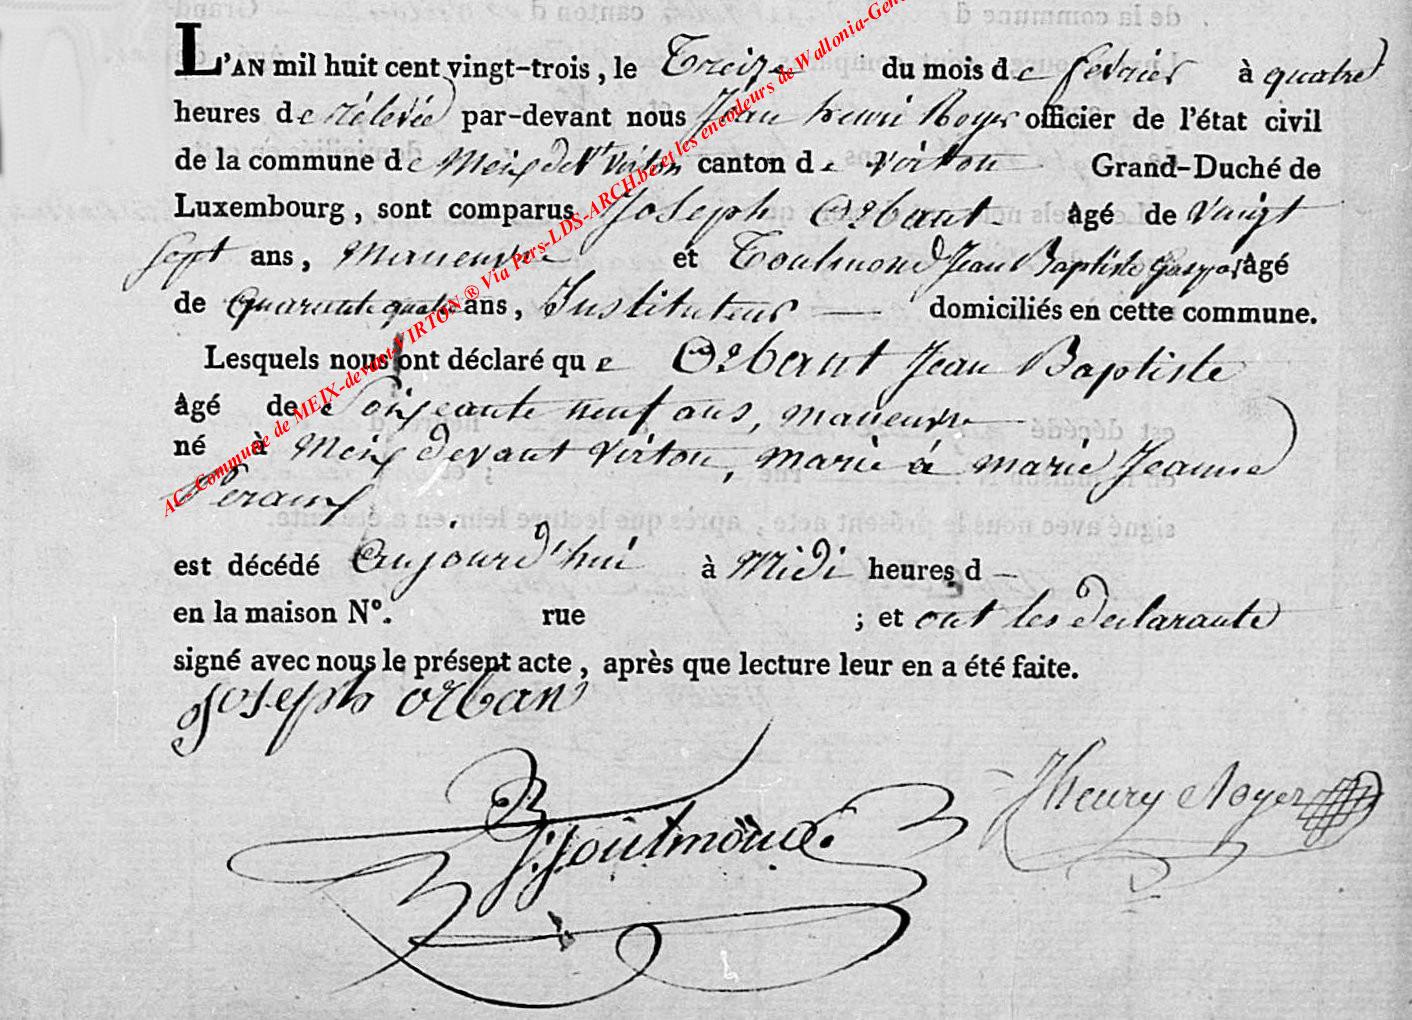 L'AN mil huit cent vingt-trois, le Treize du mois de février à quatre
heures de rélevée par-devant nous Jean henri Royer officier de l'état civil
de la commune de Meix devt Virton canton de Virton Grand-Duché de
Luxembourg, sont comparus Joseph Orbant âgé de Vaingt
sept ans, maneuvre et Toulmond Jean Baptiste Gaspar âgé
de quarante quatre ans, Instituteur domiciliés en cette commune.
Lesquels nous ont déclaré que Orbant Jean Baptiste
âgé de soixante neuf ans, maneuvre
né à Meix devant Virton, marié à marie Jeanne
est décédé aujourd'hui à Midi heures d
en la maison N°. rue ; et ont les declarants
signé avec nous le présent acte, après que lecture leur en a été faite.
Joseph orban
Toulmond
JHenry Royer
AC- Commune de MEIX-devant-VIRTON ® Via Pers-LDS-ARCH.be et les encodeurs de Wallonia-Gen